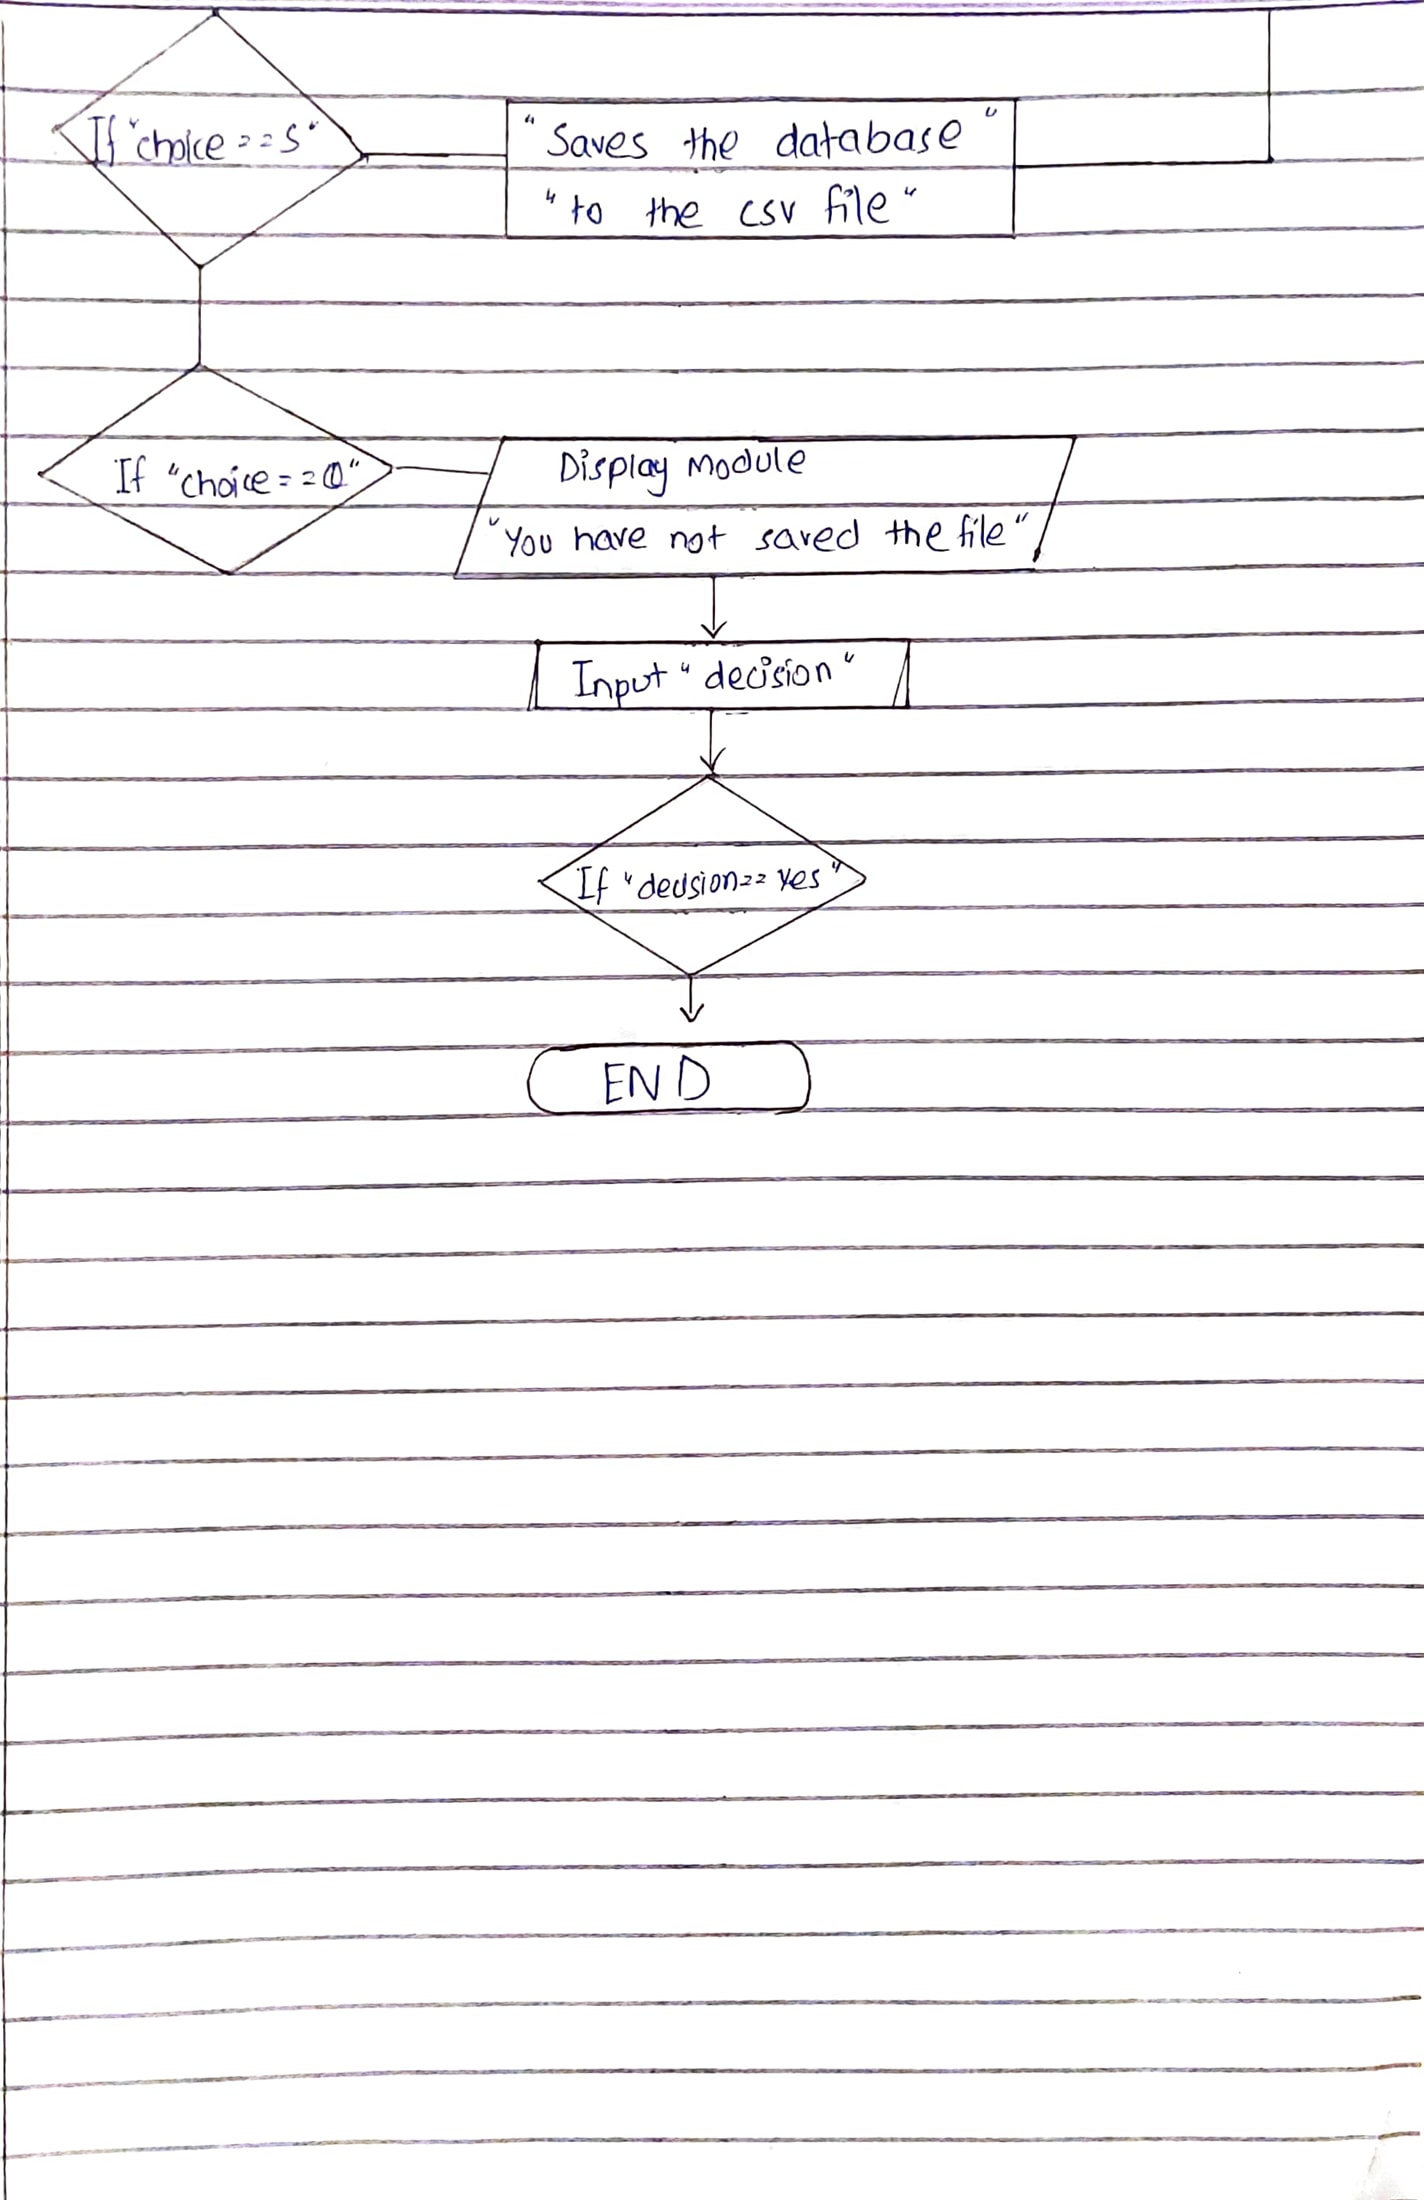 If "choice==S"
"Saves the database"
"to the csv file"
If "choice==Q"
Display Module
"You have not saved the file"
Input "decision"
If "decision== yes"
END